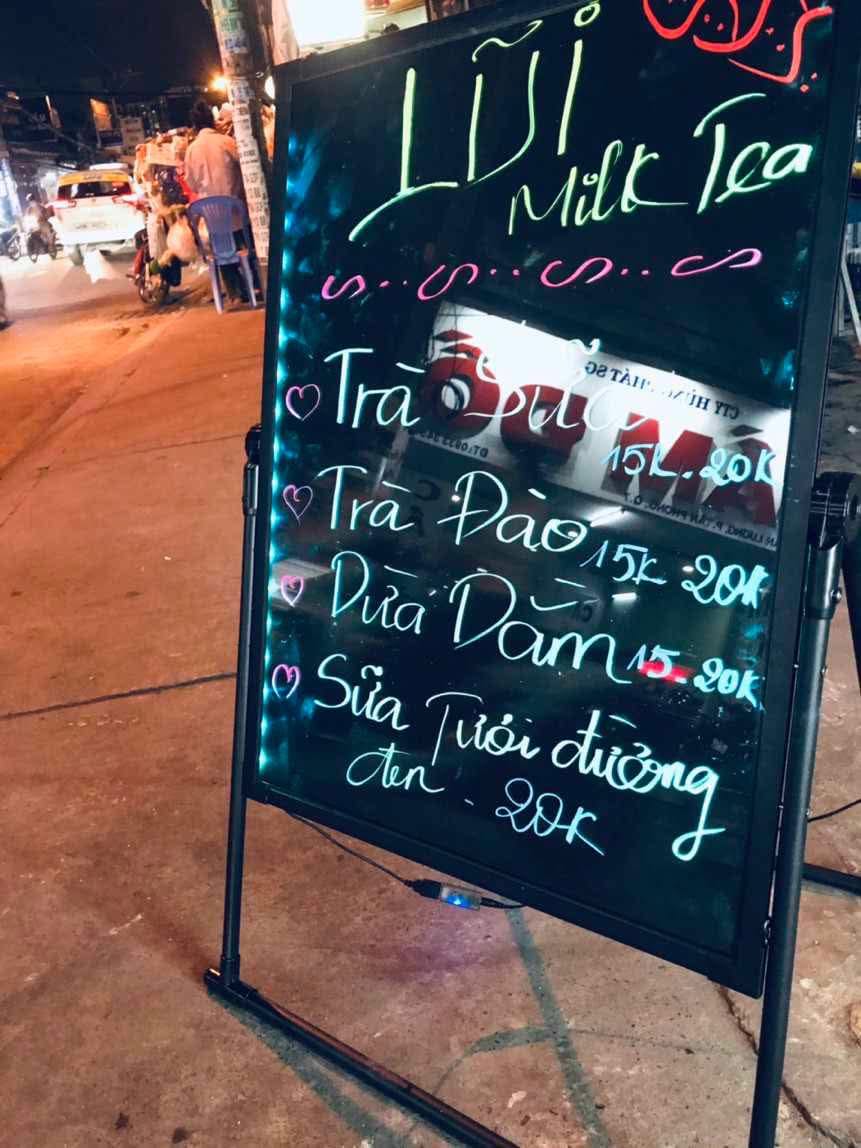 Lũi
Milk Tea
Trà Sữa
15K. 20K
Trà Đào 15K 20K
Dừa Dầm 15. 20K
Sữa Tươi đường
đen - 20K